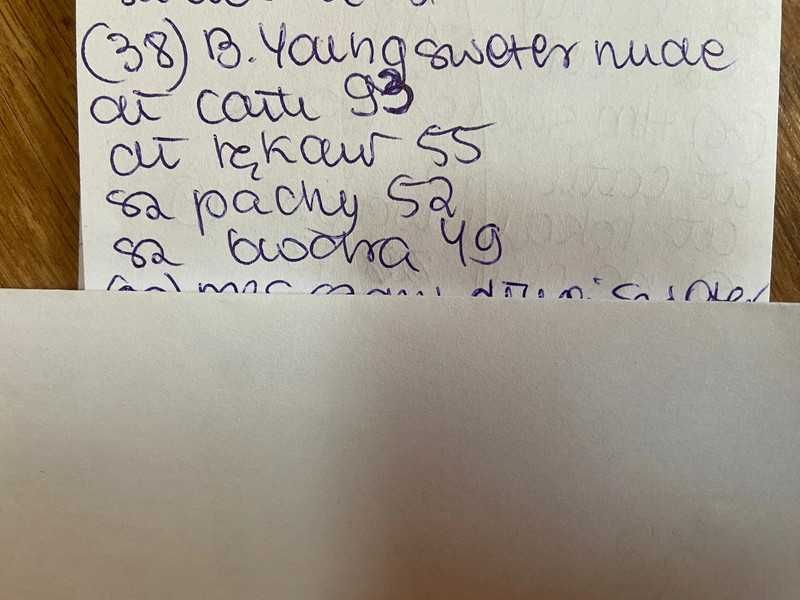 (38) B. Young sweter nude
dł całk 93
dł rękaw 55
sz pachy 52
sz biodra 49